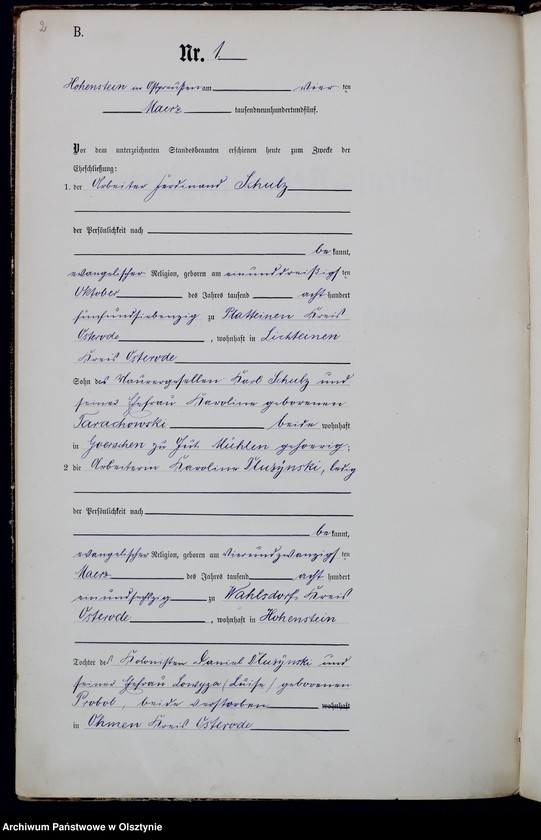 2
B.
Nr. 1
Hohenstein in Ostpreußen am vier ten
Maerz tausendneunhundertundfünf.
Vor dem unterzeichneten Standesbeamten erschienen heute zum Zwecke der
Eheschließung:
1. der Arbeiter Ferdinand Schulz
der Persönlichkeit nach
be kannt,
evangelischer Religion, geboren am einunddreißigs ten
Oktober des Jahres tausend acht hundert
fünfundsiebenzig zu Platteinen Kreis
Osterode , wohnhaft in Lichteinen
Kreis Osterode
Sohn des Maurergesellen Karl Schulz und
seiner Ehefrau Karoline geborenen
Tarachowski beide wohnhaft
in Goerschen zu Gut Mühlen gehoerig.
2 die Arbeiterin Karoline Dluzynski, ledig
der Persönlichkeit nach
be kannt,
evangelischer Religion, geboren am vierundzwanzigs ten
Maerz des Jahres tausend acht hundert
einundsechzig zu Wahlsdorf, Kreis
Osterode , wohnhaft in Hohenstein
Tochter des Kolonisten Daniel Dluzynski und
seiner Ehefrau Lowyza (Luise) geborenen
Probol, beide verstorben wohnhaft
in Ohmen Kreis Osterode
Archiwum Państwowe w Olsztynie